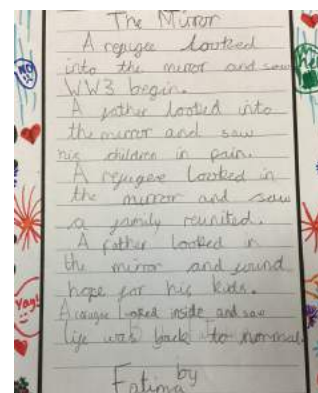 The Mirror
A refugee looked
into the mirror and saw
WW3 begin.
A father looked into
the mirror and saw
his children in pain.
A refugee looked in
the mirror and saw
a family reunited.
A father looked in
the mirror and found
hope for his kids.
A refugee looked inside and saw
life was back to normal.
by
Fatima
NO
Yay!
he